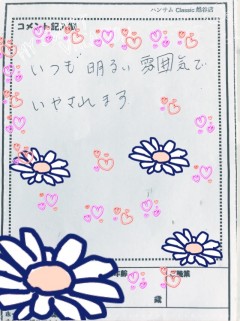 ハンサム Classic 熊谷店
コメント記入欄
いつも明るい雰囲気で
いやされます
年齢
ご職業
歳